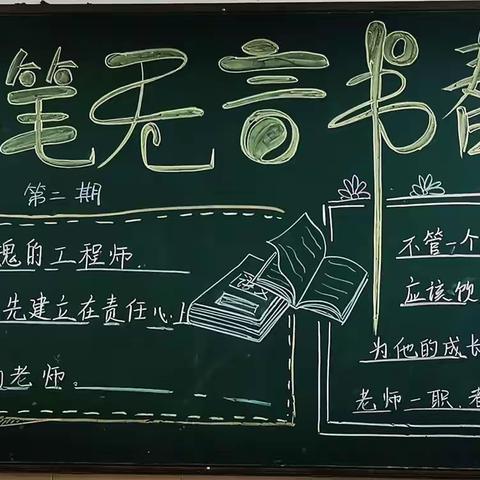 笔无言书春
第二期
瑰的工程师.
先建立在责任心上
的老师。
不管一个
应该饮
为他的成长
老师一职.春